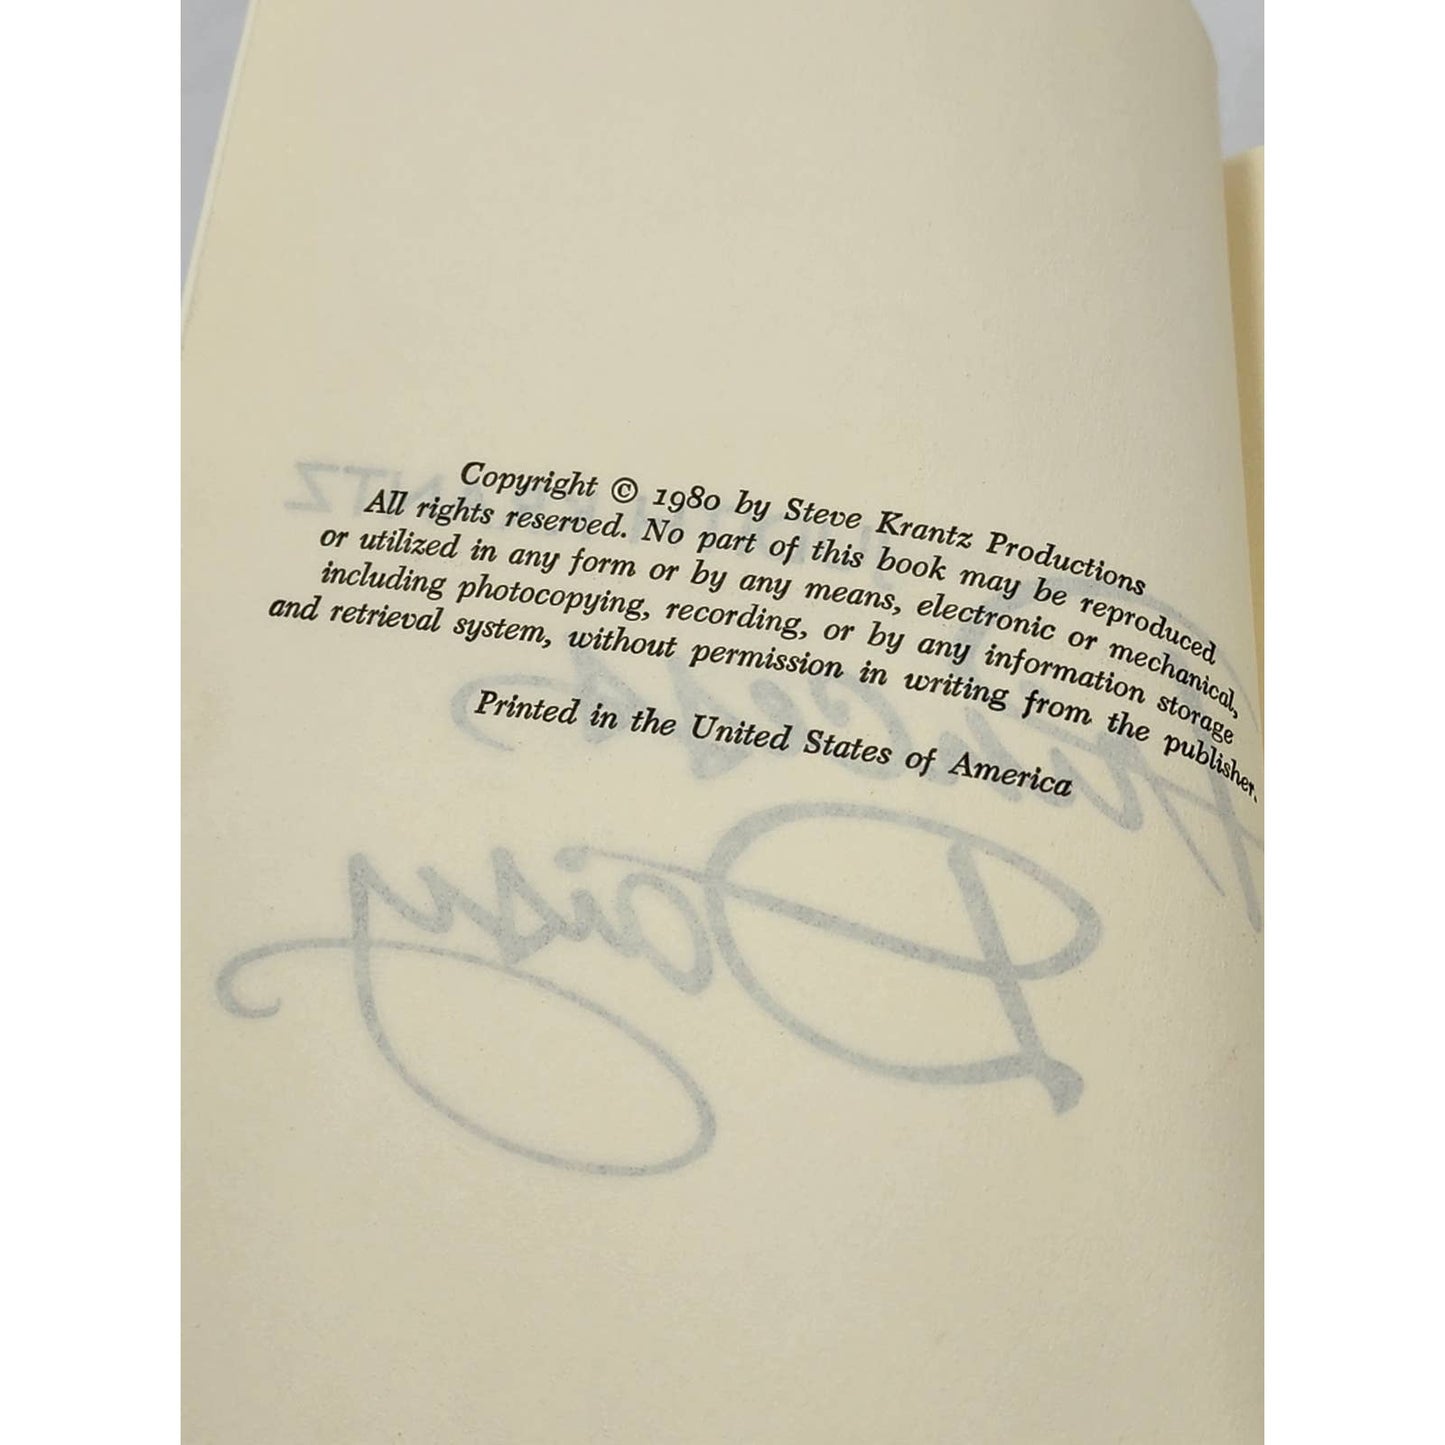 Copyright © 1980 by Steve Krantz Productions
All rights reserved. No part of this book may be reproduced
or utilized in any form or by any means, electronic or mechanical,
including photocopying, recording, or by any information storage
and retrieval system, without permission in writing from the publisher.
Printed in the United States of America
Princess
Daisy